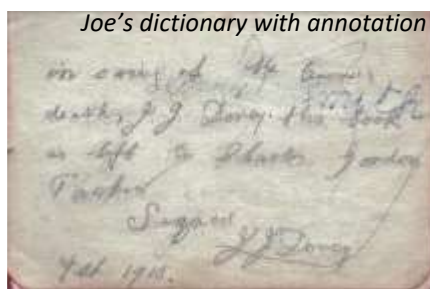 Joe's dictionary with annotation
in case of the
death J. J. Dorey this book
is left to Charles Gordon
Signed
J J Dorey
Feb 1918.